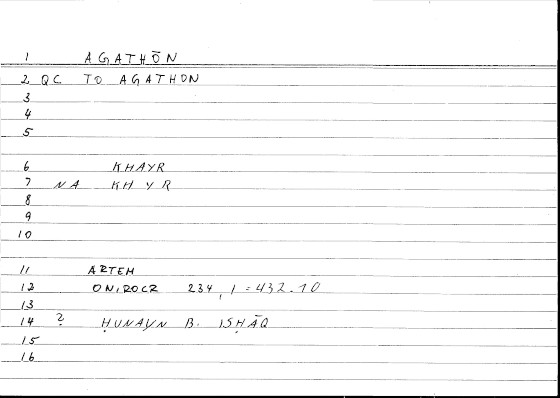 1 AGATHŌN
2 QC TO AGATHON
3
4
5
6 KHAYR
7 NA KH Y R
8
9
10
11 ARTEM
12 ONIROCR 234, 1 = 432.10
13
14 ? ḤUNAYN B. ISḤĀQ
15
16